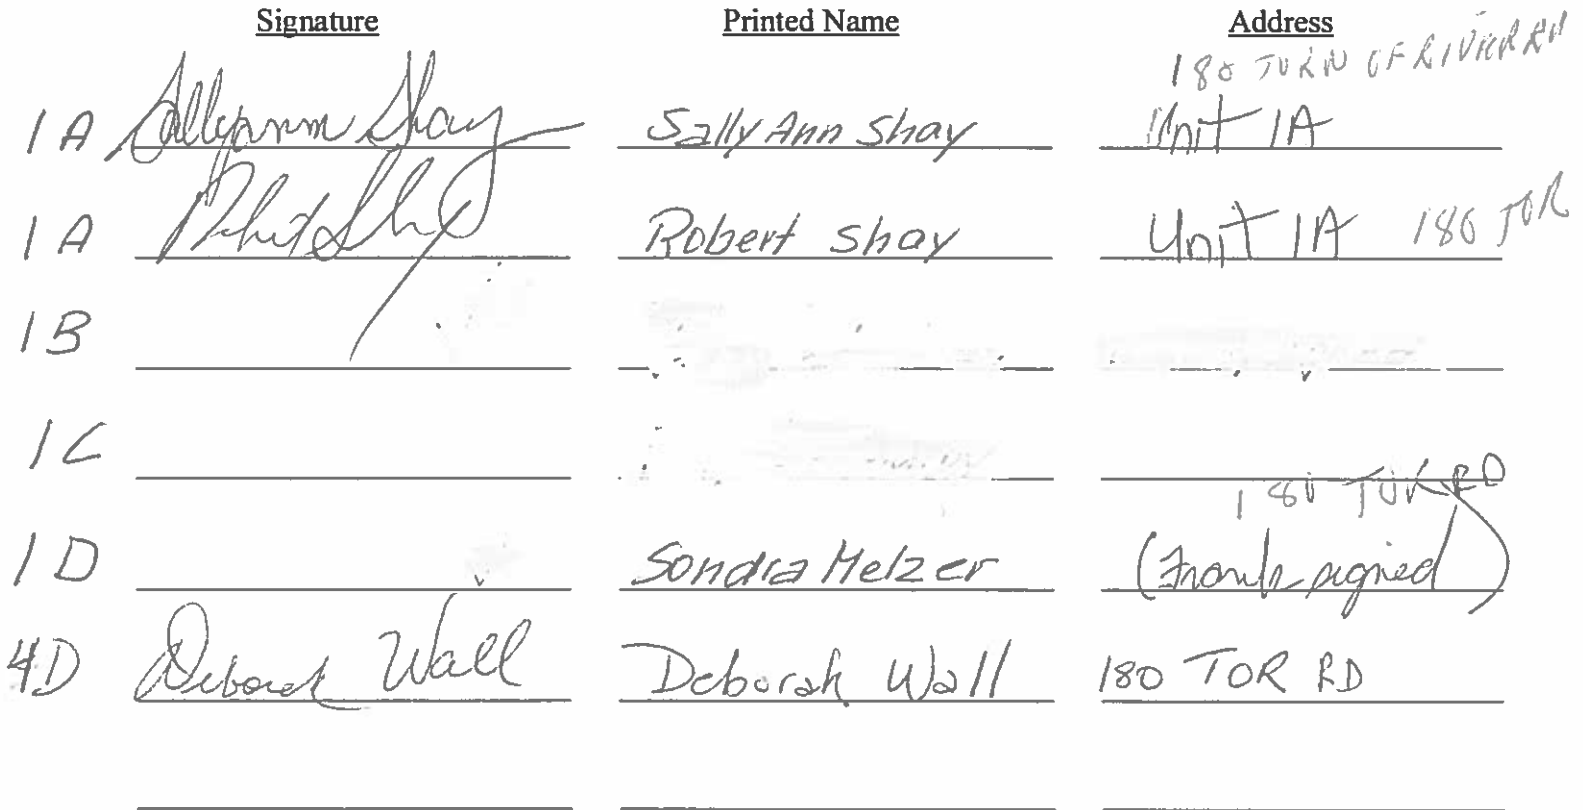 Signature Printed Name Address
180 TURN OF RIVER RD
1A Sallyann Shay Sally Ann Shay Unit 1A
1A Robert Shay Robert Shay Unit 1A 180 TOR
1B
1C
180 TOR RD
1D Sondra Melzer (Frank signed)
4D Deborah Wall Deborah Wall 180 TOR RD